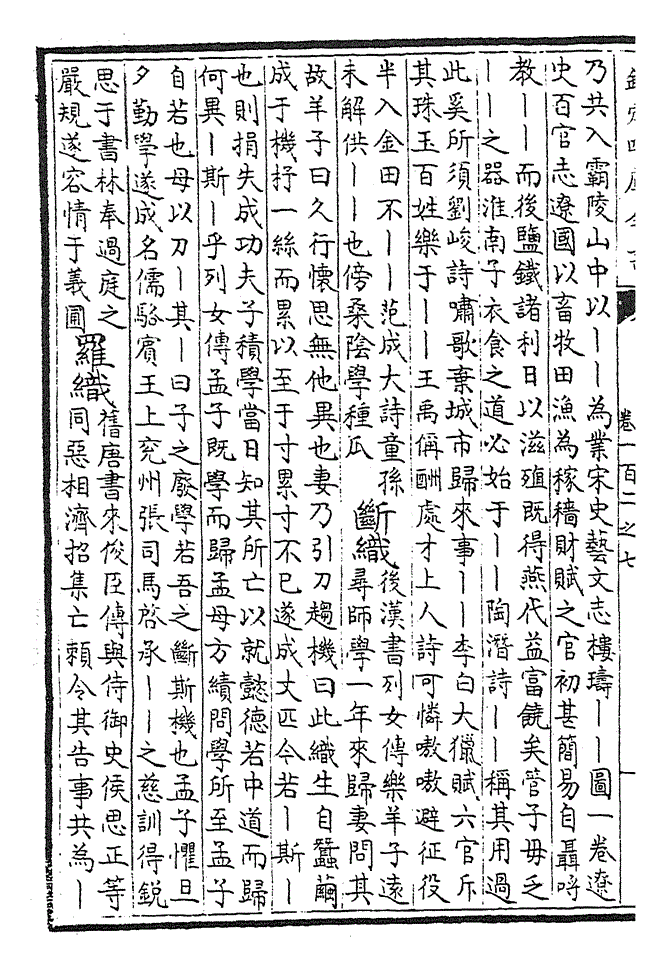 欽定四庫全書
卷一百二之七
乃共入霸陵山中以丨丨為業宋史藝文志樓璹丨丨圖一卷遼
史百官志遼國以畜牧田漁為稼穡財賦之官初甚簡易自聶呼
教丨丨而後鹽鐵諸利日以滋殖既得燕代益富饒矣管子毋乏
丨丨之器淮南子衣食之道必始于丨丨陶潛詩丨丨稱其用過
此奚所須劉峻詩嘯歌棄城市歸來事丨丨李白大獵賦六官斥
其珠玉百姓樂于丨丨王禹偁酬處才上人詩可憐嗷嗷避征役
半入金田不丨丨范成大詩童孫
未解供丨丨也傍桑陰學種瓜
斷織
後漢書列女傳樂羊子遠
尋師學一年來歸妻問其
故羊子曰久行懷思無他異也妻乃引刀趨機曰此織生自蠶繭
成于機杼一絲而累以至于寸累寸不已遂成丈匹今若丨斯丨
也則捐失成功夫子積學當日知其所亡以就懿德若中道而歸
何異丨斯丨乎列女傳孟子既學而歸孟母方績問學所至孟子
自若也母以刀丨其丨曰子之廢學若吾之斷斯機也孟子懼旦
夕勤學遂成名儒駱賓王上兖州張司馬啓承丨丨之慈訓得鋭
思于書林奉過庭之
嚴規遂容情于義圃
羅織
舊唐書來俊臣傳與侍御史侯思正等
同惡相濟招集亡賴令其告事共為丨